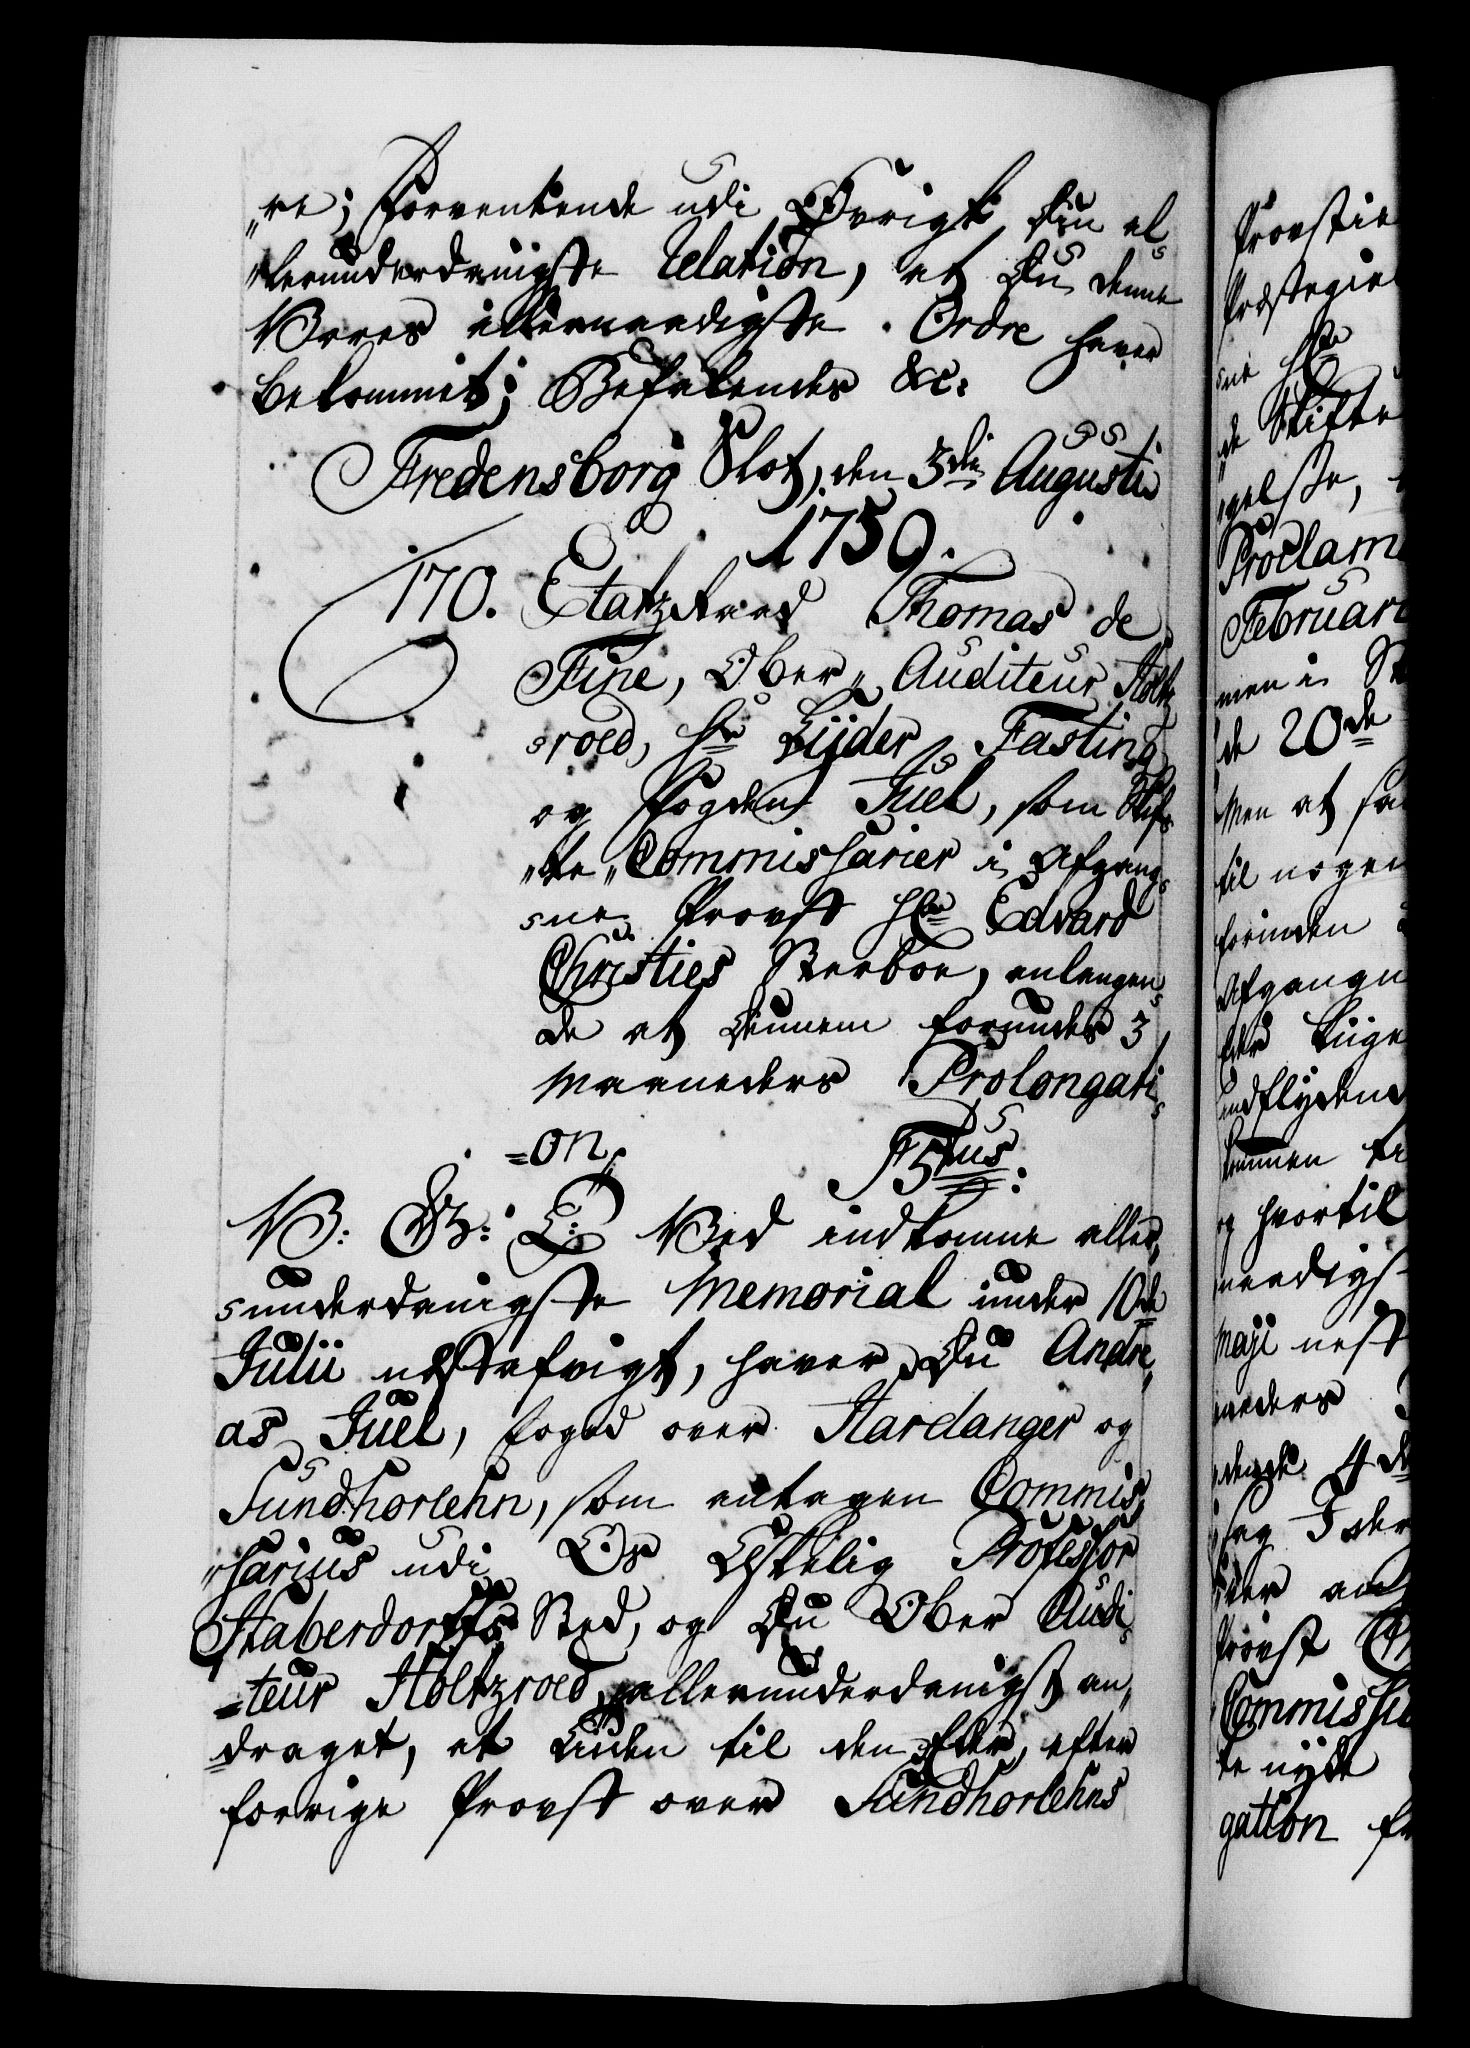 „re; Forventende udi Øvrigt Din al-
„lerunderdanigste Relation, at Du denne
Vores allernaadigste Ordre haver
bekommit; Befalendes &c:
Fredensborg Slot, den 3die Augusti
1750.
170. Etatzraad Thomas de
Fine, Ober-Auditeur Holtz-
-roed, Hr Lyder Fasting
og Fogden Juel, som Skif-
„te-Commissarier i Afgang-
-ne Provst Hr Edvard
Christies Sterboe, anlangen-
de at dennem forundes 3
Maaneders Prolongati-
=on. F5tus:
V: G: T: Ved indkomne aller-
-underdanigste Memorial under 10de
Julii nestafvigt, haver Du Andre-
as Juel, foged over Hardanger og
Sundhorlehn, som antagen Commis-
„sarius udi Os Elskelig Professor
Haberdorffs Sted, og Du Ober Audi-
=teur Holtzroed, allerunderdanigst an-
=draget, at Tiden til den Eder, efter
forrige Provst over Sundhorlehns
Provstie
Præstegie
-ne Hr
de Skifte
-gelse,
Proclam
Februari
men i
de 20de
Men at
til nogen
forinden
Afgangn
Eder liige
indflydend
kommen
og hvortil
naadigs
Maji nest
neders
4de
sag
Provst
Commissa
te nyde
gation